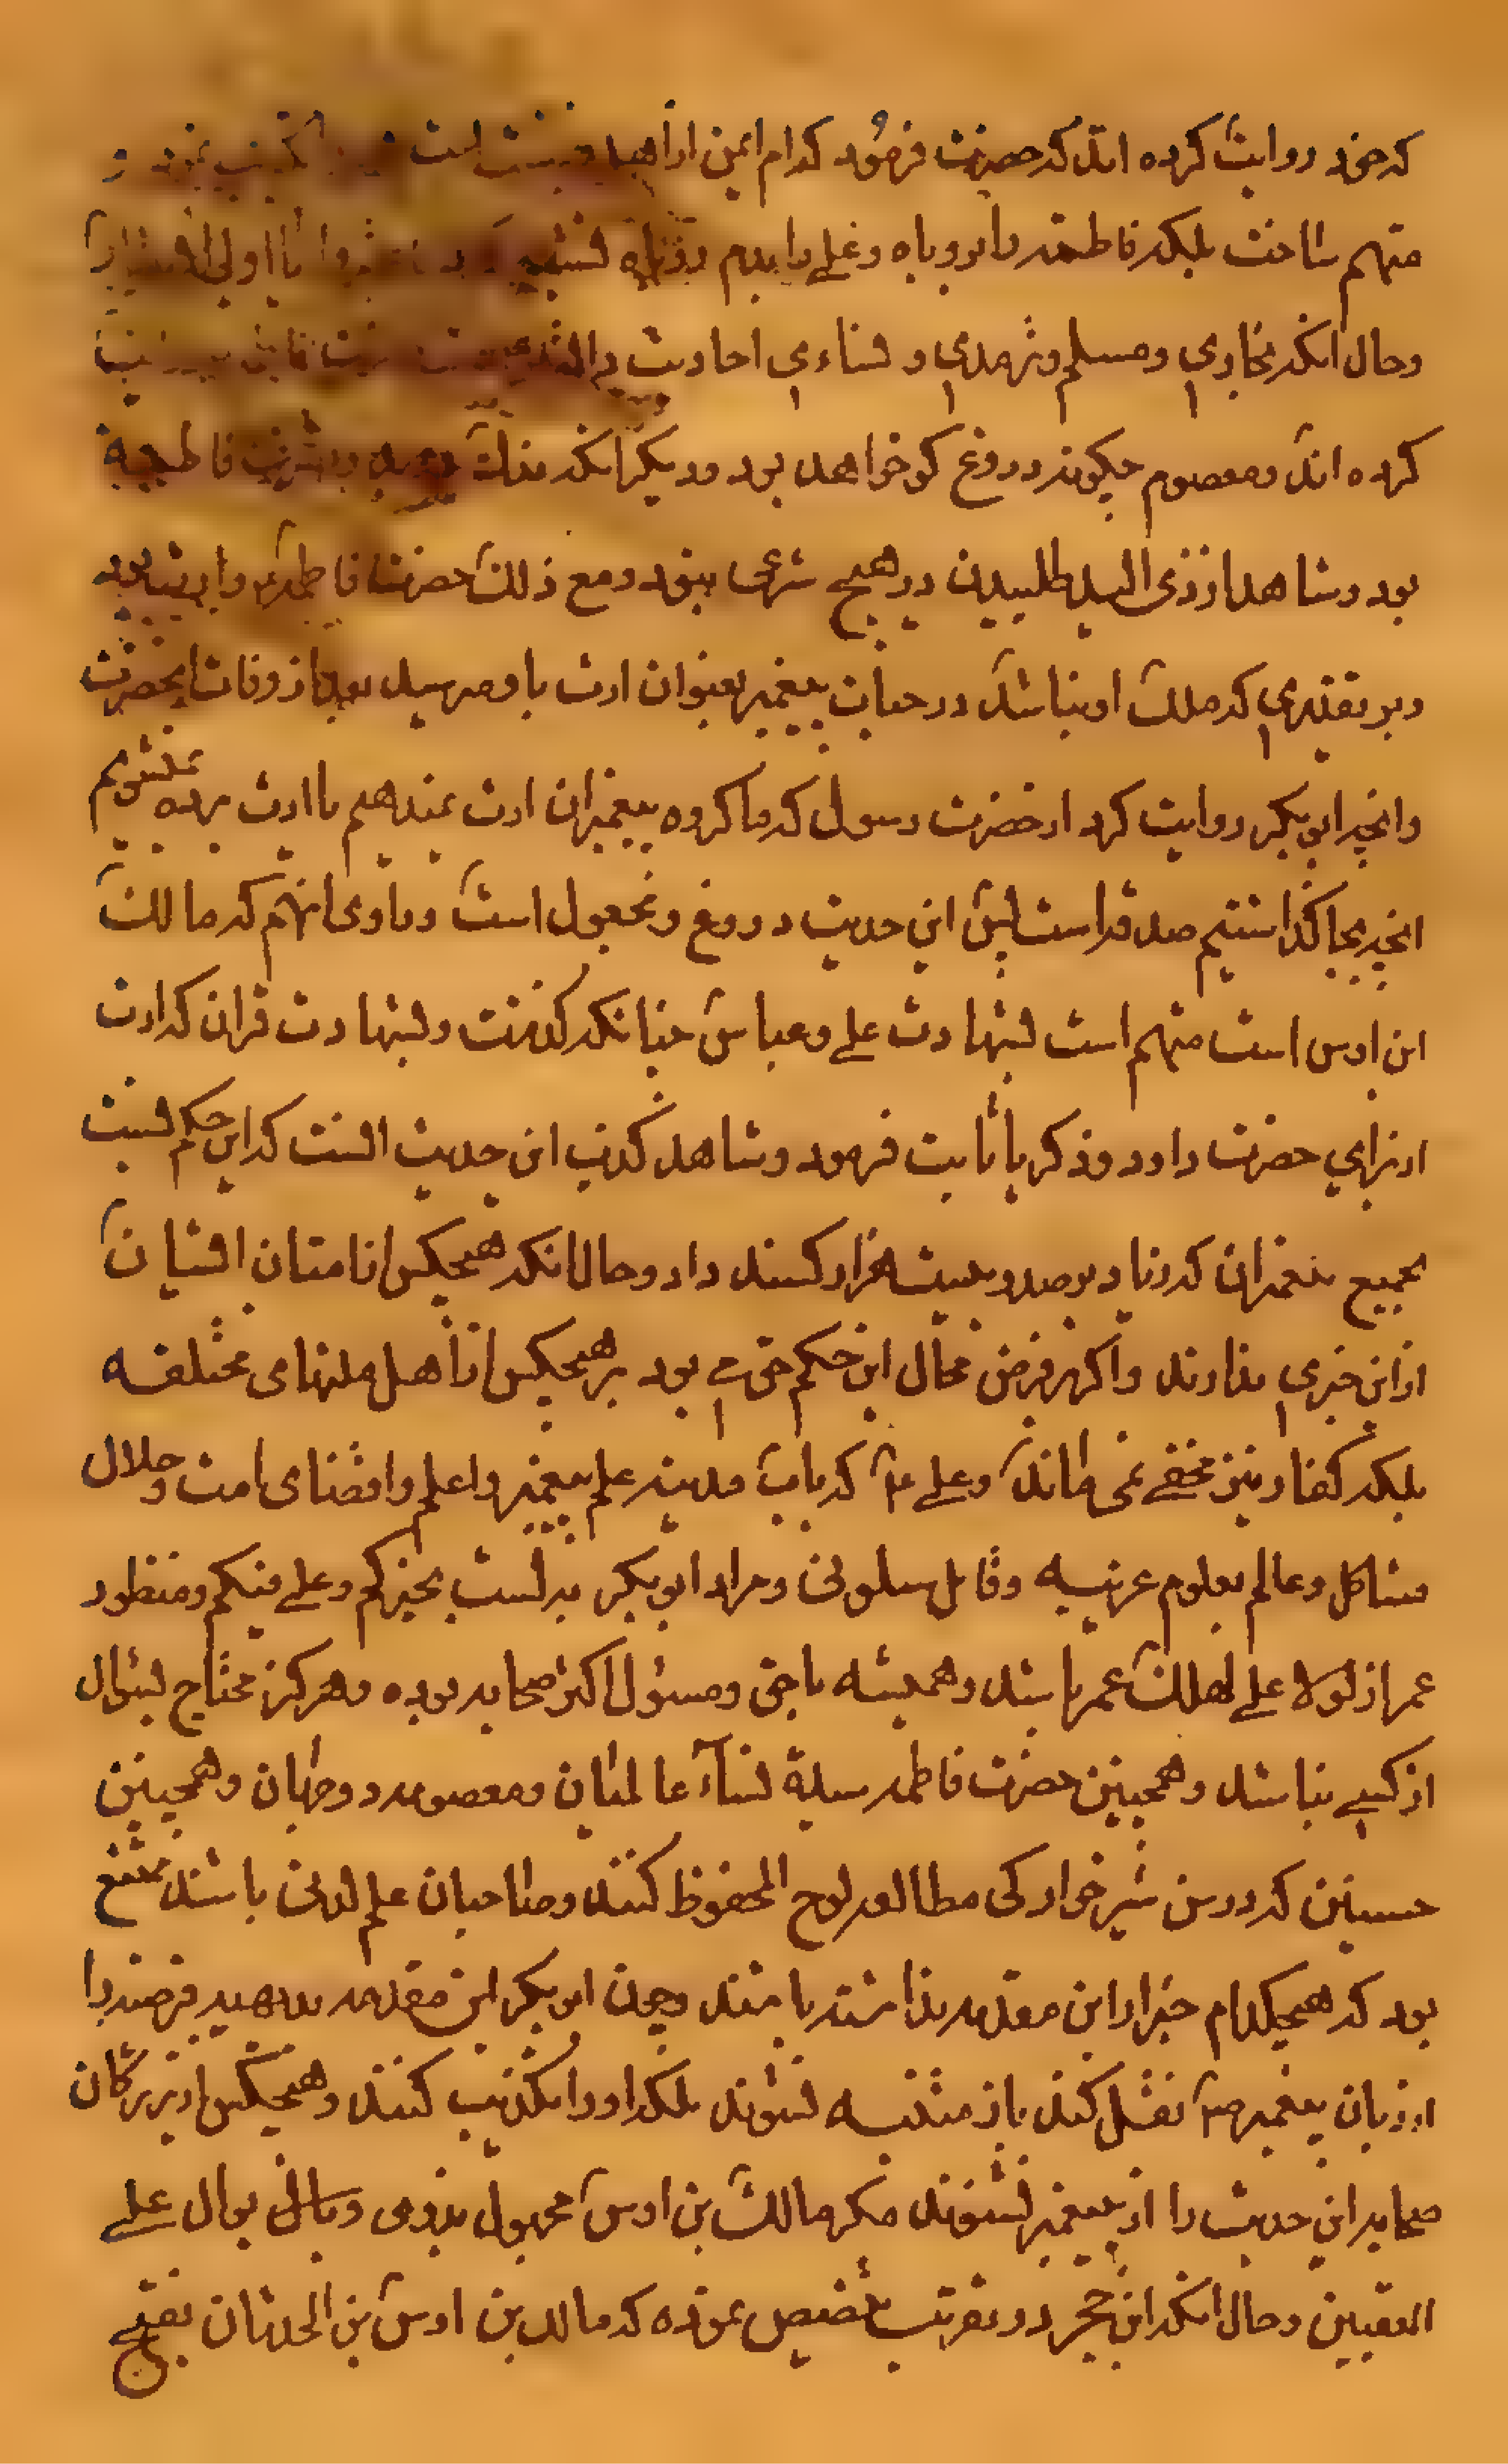 که خود روایت کرده اند که حضرت فرمود که ام ایمن از اهل بهشت است و
متهم ساخت بلکه فاطمه را بروباه و علی را بدم روباه تشبیه
وحال انکه بخاری ومسلم وترمدی و نساءی احادیث
کرده اند ومعصوم چکونه دروغ کو خواهد بود ودیکر انکه فدک در ید وتصرف فاطمه
بود وشاهد از ذی الید طلبیدن در هیچ شرعی نبود ومع ذلک حضرت فاطمه
وبر تقدیری که ملک او نباشد در حیات پیغمبر بعنوان ارث باو میرسید بعد از وفات انحضرت
وانچه ابوبکر روایت کرد از حضرت رسول که ما کروه پیغمبران ارث نمیدهیم یا ارث برده نمیشویم
انچه بجا کذاشتیم صدقه است پس این حدیث دروغ و مجعول است وراوی انهم که مالک
ابن اوس است متهم است بشهادت علی وعباس چنانکه کذشت وبشهادت قران که ارث
از برای حضرت داود وذکریا ثابت فرمود وشاهد کذب این حدیث انست که این حکم نسبت
بجمیع پیغمبران که زیاد بر صد وبیست هزار کسند داد وحال انکه هیچکس از امتان ایشان
از این خبری ندارند واکر بفرض محال این حکم حق می بود بر هیچکس از اهل ملتهای مختلفه
بلکه کفار نیز مخفی نمی ماند وعلی ع که باب مدینه علم پیغمبر واعلم واقضای امت وحلال
مشاکل وعالم بعلوم غریبه وقایل سلونی ومراد ابوبکر بر لست بخیرکم وعلی فیکم ومنظور
عمر از لولا علی لهلک عمر باشد وهمیشه با حق ومسؤل اکثر صحابه بوده وهرکز محتاج بسؤال
از کسی نباشد وهمچنین حضرت فاطمه سیدة نساء عالمیان ومعصومه دو جهان وهمچنین
حسنین که در سن شیر خوارکی مطالعه لوح المحفوظ کنند وصاحبان علم لدنی باشند ممتنع
بود که هیچکدام خبر از این مقدمه نداشته باشند وچون ابوبکر این مقدمه بدیهیه فرضیه را
از زبان پیغمبر ص نقل کند باز متنبه نشوند بلکه او را تکذیب کنند وهیچکس از بزرکان
صحابه این حدیث را از پیغمبر نشنوند مکر مالک بن اوس مجهول بدوی بوال علی
العقبین وحال انکه ابن حجر در تقریب تنصیص نموده که مالک بن اوس بن الحدثان بفتح